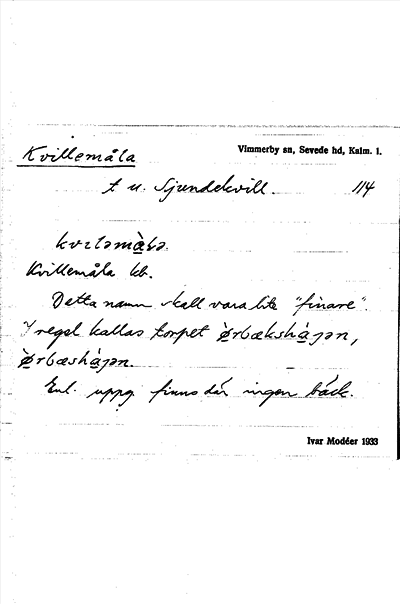 Kvillemåla
Vimmerby sn, Sevede hd, Kalm. l.
t u. Sjundekvill. 114
kviləmàla.
Kvillemåla kb.
Detta namn skall vara lite "finare".
I regel kallas torpet ø̀rbækshàjən,
ø̀rbæshàjən.
Enl. uppg. finns där ingen bäck.
Ivar Modéer 1933